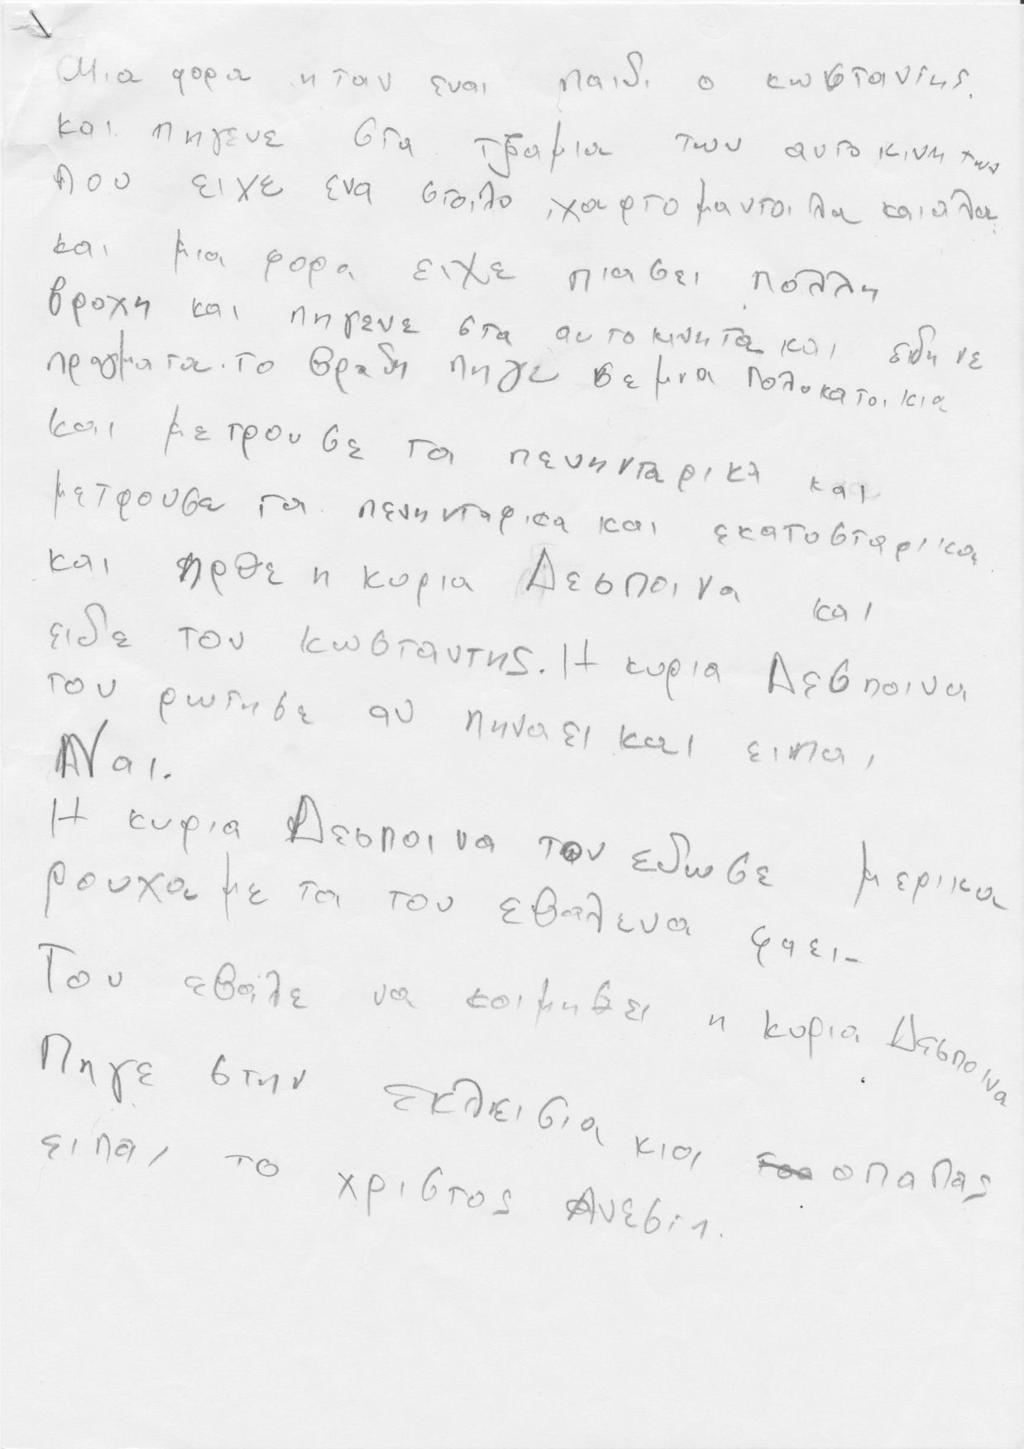 Μια φορα ηταν εναι παιδι ο κωσταντης.
και πηγενε στα τζαμια των αυτοκινητων
που ειχε ενα στοιλο ,χαρτομαντοιλα και αλα.
και μια φορα ειχε πιασει πολλη
βροχη και πηγενε στα αυτοκινητα και εδηνε
πραγματα. το βραδη πηγε σε μνα πολυκατοικια
και μετρουσε τα πενηνταρικα και
μετρουσε τα πενηνταρικα και εκατοσταρικα
και ηρθε η κυρια Δεσποινα και
ειδε τον κωσταντης. Η κυρια Δεσποινα
του ρωτησε αν πηναει και ειπαι
ΑΝαι.
Η κυρια Δεσποινα τον εδωσε μερικα
ρουχα με τα του εβαλενα φαει-
Του εβαλε να κοιμησει η κυρια Δεσποινα
Πηγε στην εκλεισια κιαι ο παπας
ειπαι το χριστος Ανεσιη.